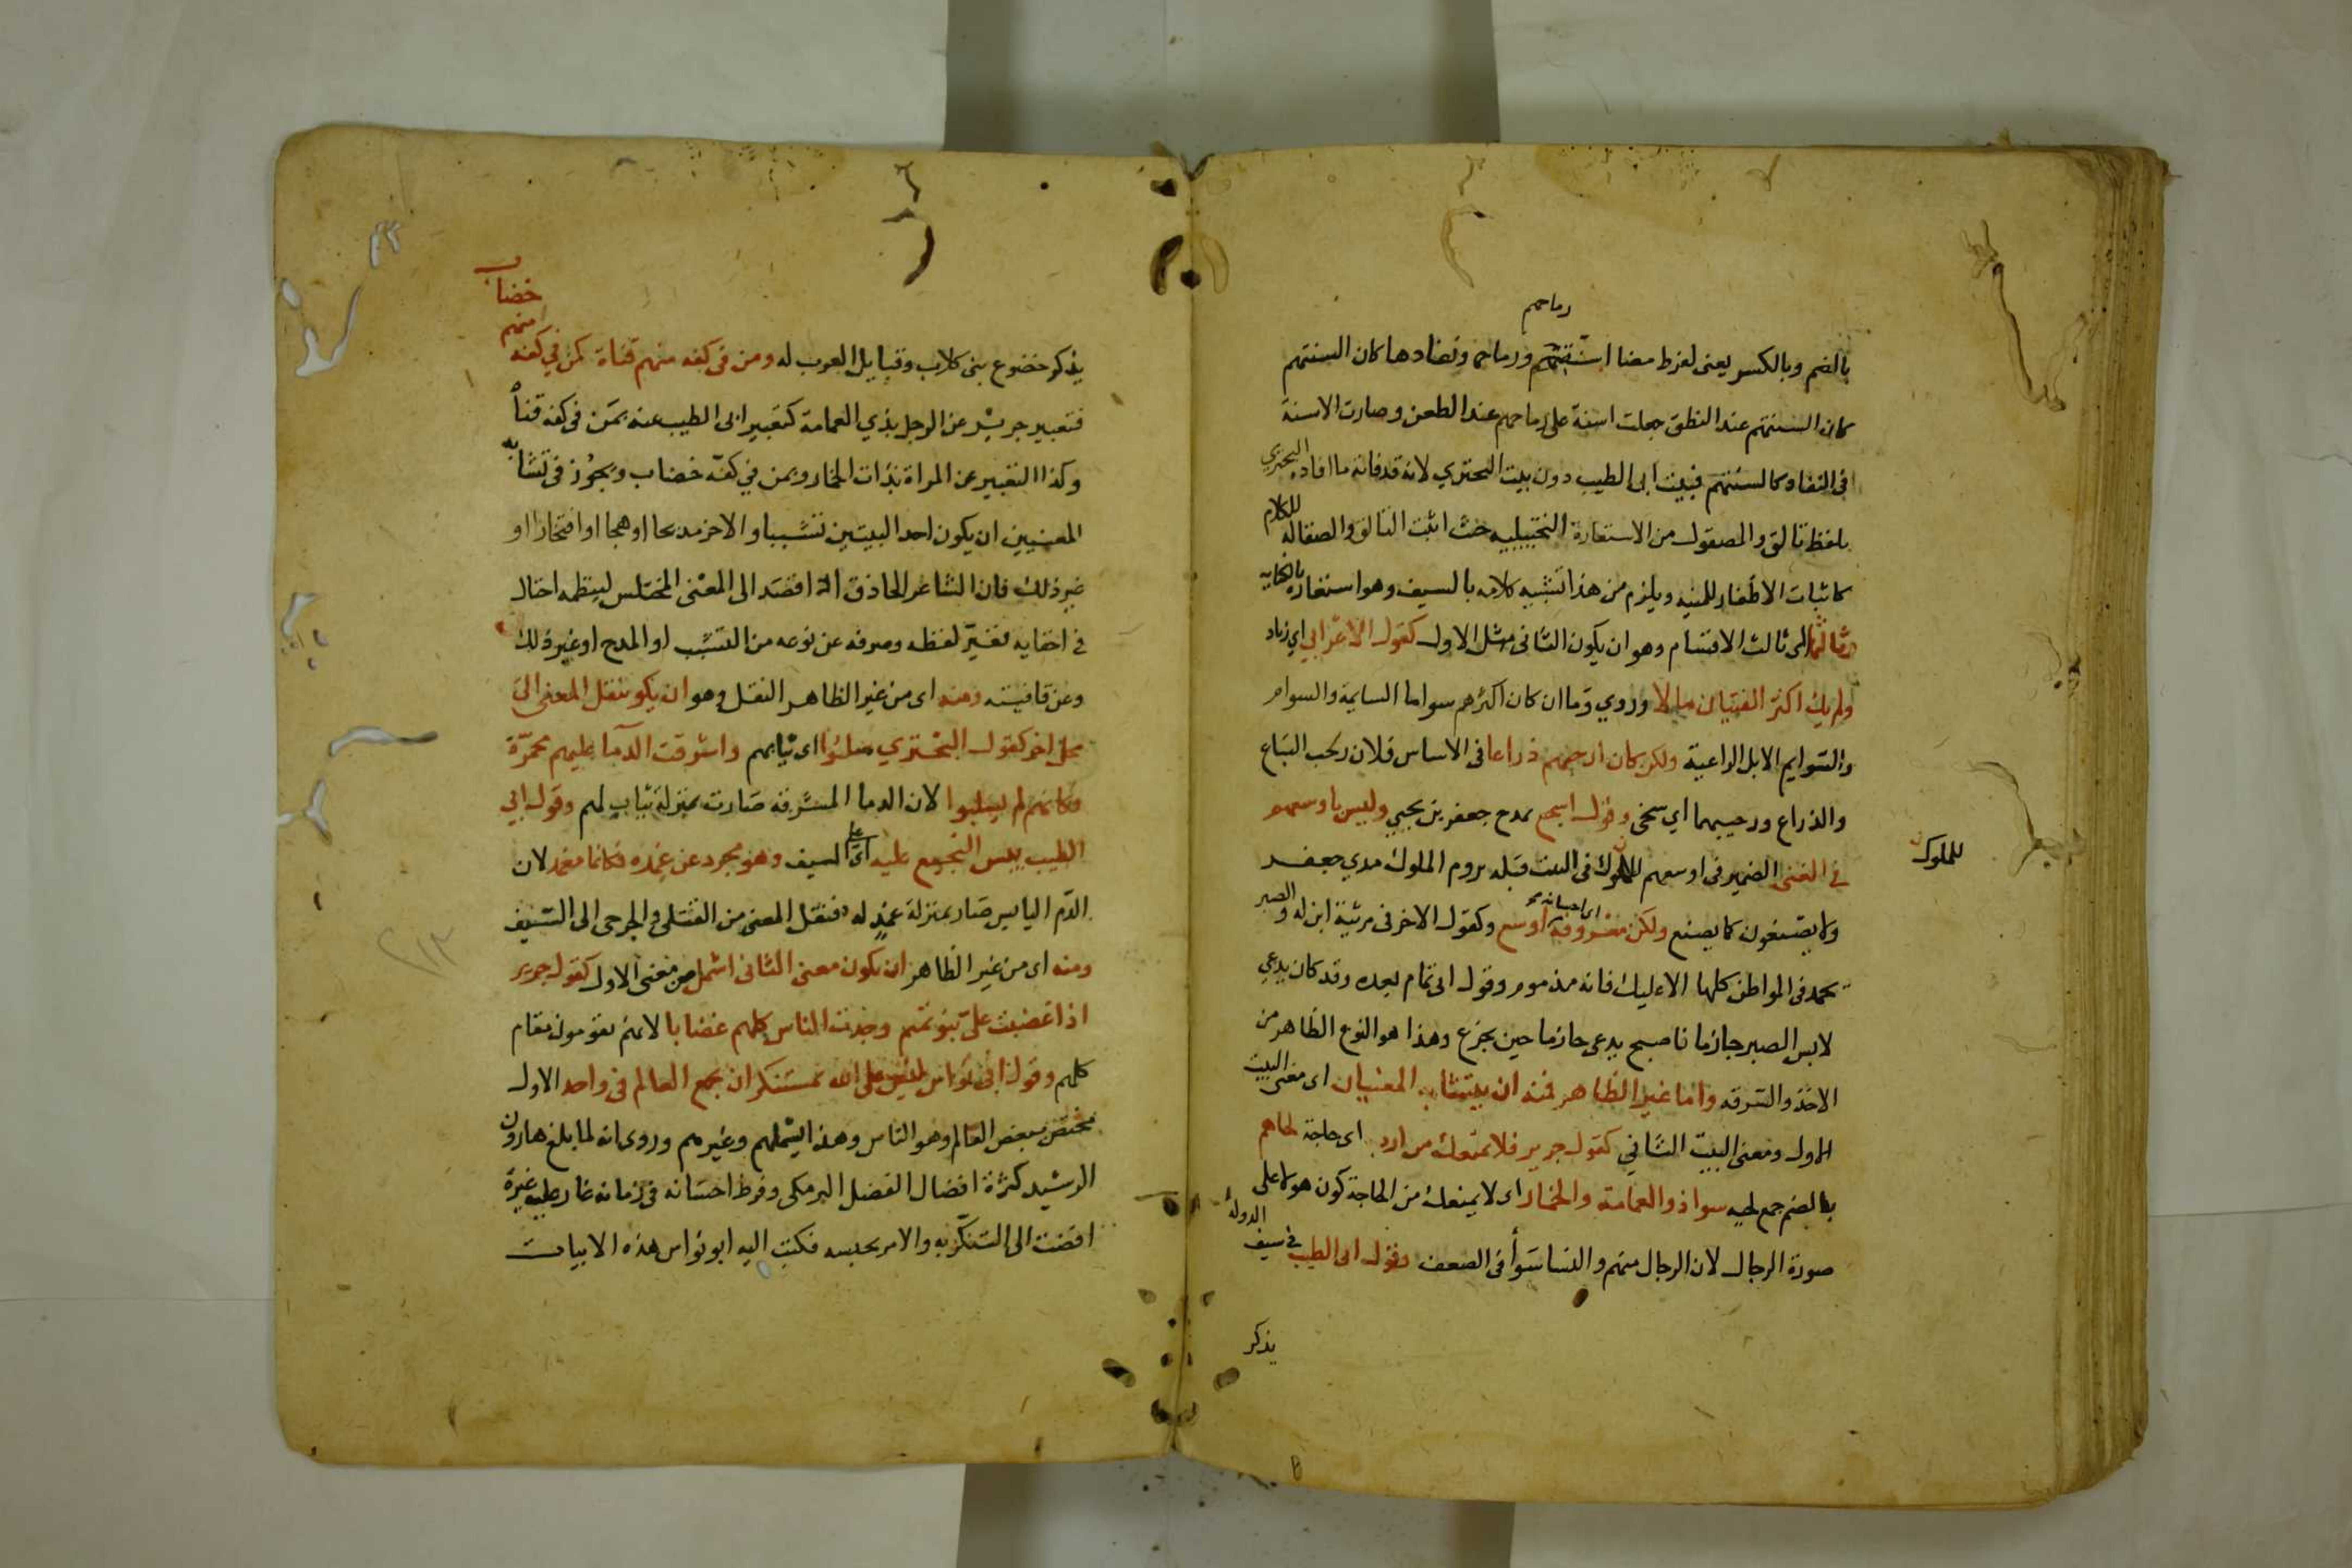 رماحهم
بالضم وبالكسر يعنى لفرط مضا اسنتهم ورماحهم ونفادها كان السنتهم
كان السنتهم عند النطق جعلت اسنة على رماحهم عند الطعن وصارت الاسنة
فى النفاد كالسنتهم فبيت ابى الطيب دون بيت البحتري لانه قد فاته ما افاده البحتري
بلفظ تالق والمصقول من الاستعارة التخييلييه حيث اثبت التالق والصقاله للكلام
كاثبات الاظفار للمنيه ويلزم من هذا تشبيه كلامه بالسيف وهو استعاره بالكنايه
وثالثها اى ثالث الاقسام وهو ان يكون الثانى مثل الاول كقول الاعرابي اي زياد
ولم يك اكثر الفتيان مالا وروي وما ان كان اكثرهم سواما السايمة والسوام
والسوايم الابل الراعية ولكن كان ارحبهم ذراعا فى الاساس فلان رحب الباع
والذراع ورحيبهما اي سخى وقول اشجع يمدح جعفر بن يحيي وليس باوسعهم
للملوك
في الغنى الضمير فى اوسعهم للملوك فى البيت قبله يروم الملوك مدي جعفر
ولا يصنعون كما يصنع ولكن معروفه اى احسانه اوسع وكقول الاخر فى مرثية ابن له والصبر
يحمد فى المواطن كلها الا عليك فانه مذموم وقول ابى تمام بعده وقد كان يدعي
لابس الصبر حازما فاصبح يدعى حازما حين يجزع وهذا هو النوع الظاهر من
الاخذ والسرقه واما غير الظاهر فمنه ان يتشابه المعنيان اى معنى البيت
الاول ومعنى البيت الثاني كقول جرير فلا يمنعك من ارب اى حاجة لحاهم
بالضم جمع لحيه سوا ذو العمامة والخمار اى لا يمنعك من الحاجة كون هولا على
صورة الرجال لان الرجال منهم والنسا سوأ فى الضعف وقول ابى الطيب في سيف الدولة
يذكر
يذكر خضوع بنى كلاب وقبايل العرب له ومن فى كفه منهم قناة كمن في كفه منهم خضاب
فتعبير جرير عن الرجل بذي العمامة كتعبير ابى الطيب عنه بمن فى كفه قناة
وكذا التعبير عن المراة بذات الخمار وبمن في كفه خضاب ويجوز فى تشابه
المعنيين ان يكون احد البيتين تشبيبا والاخر مديحا او هجا او افتخارا او
غير ذلك فان الشاعر الحاذق اذا قصد الى المعنى المختلس لينظمه احتال
في اخفايه فغير لفظه وصرفه عن نوعه من التشبب او المدح او غير ذلك
وعن قافيته ومنه اى من غير الظاهر النقل وهو ان يكو ينقل المعنى الى
محل اخر كقول البحتري سلبوا اى ثيابهم واشرقت الدما عليهم محمرة
فكانهم لم يسلبوا لان الدما المشرقة صارت بمنزلة ثياب لهم وقول ابي
الطيب يبس النجيع عليه اى على السيف وهو مجرد عن غمده فكانما مغمد لان
الدم اليابس صار بمنزلة غمد له فنقل المعنى من القتلى والجرحى الى السيف
ومنه اى من غير الظاهر ان يكون معنى الثانى اشمل من معنى الاول كقول جرير
اذا غضبت علي بنو تميم وجدت الناس كلهم غضابا لانهم يقومون مقام
كلهم وقول ابى نواس ليس على الله بمستنكر ان يجمع العالم في واحد الاول
مختص ببعض العالم وهو الناس وهذا يشملهم وغيرهم وروى انه لما بلغ هارون
الرشيد كثرة افضال الفضل البرمكى وفرط احسانه فى زمانه غار عليه غيرة
افضت الى التنكر به والامر بحبسه فكتب اليه ابو نواس هذه الابيات